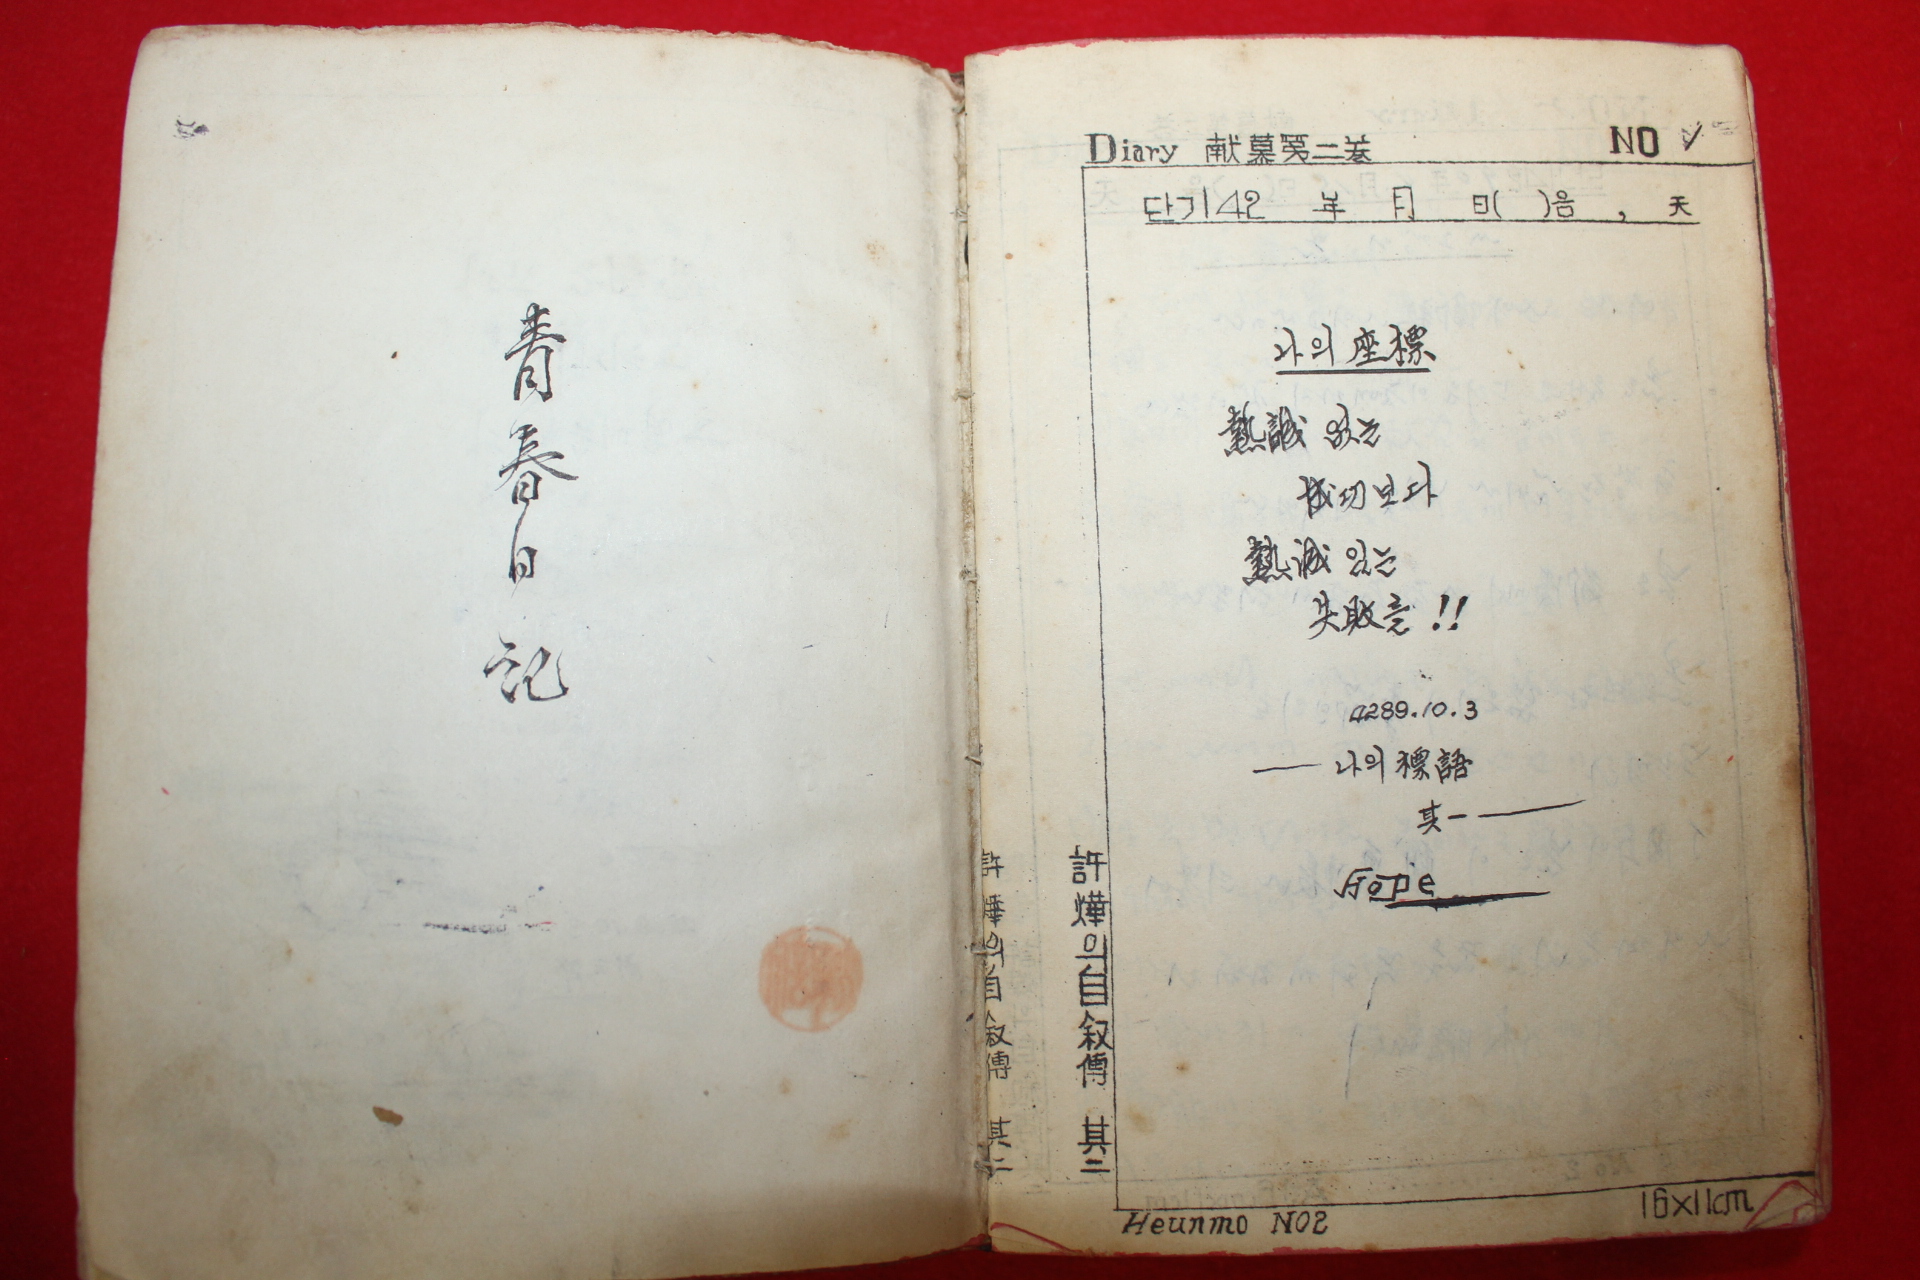 青春日記
Diary 献慕第二巻 NO
단기42 年 月 日( )음 , 天
나의 座標
熱誠 없는
成功보다
熱誠 있는
失敗를 !!
4289.10.3
— 나의 標語
其一 —
Hope
許燁의自叙傳 其二
許燁의自叙傳 其二
Heunmo NO2
16×11cm